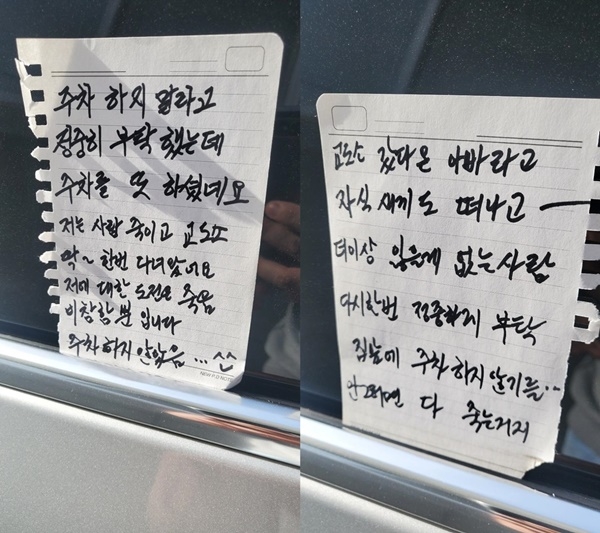 주차 하지 말라고
정중히 부탁 했는데
주차를 또 하셨네요
저는 사람 죽이고 교도소
딱~ 한번 다녀왔어요
저에 대한 도전은 죽음
비참함 뿐 입니다
주차 하지 않았음 ... ^^
교도소 갔다온 아빠라고
자식 새끼도 떠나고
더이상 잃을게 없는 사람
다시한번 정중하게 부탁
집앞에 주차 하지 않기를..
안그러면 다 죽는거지